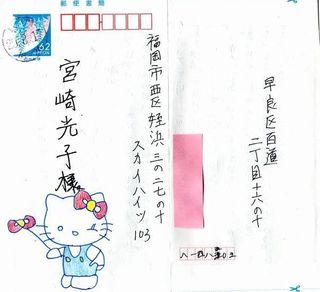 郵便書簡
62
NIPPON
福岡市西区姪浜三の二七の十
スカイハイツ103
宮崎光子様
早良区百道
二丁目十六の十